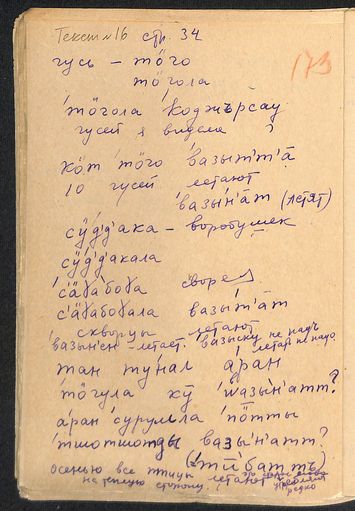 Текст №16 стр. 34
173
гусь – тӧго
тӧгола
'тӧгола 'коджърсау
гусей я видела ?
кӧт 'тӧго 'вазытта̄
10 гусей летают
'вазы'н'ат (летят)
сӱд'д'ака – воробушек
сӱд'д'акала
'сӓɣабоɣа скворец
с'ӓɣабоɣала вазы'т'ат
скворцы летают
'вазын'ен – летает. 'вазыску не надъ
летать не надо
тан ту'нал а̄ран
'тӧгула кӱ вазы'н'атт?
а̄ран 'сурулла 'пӧтты
'тшотшотды вазы'н'атт?
осенью все птицы
на теплую сторону летают
редко